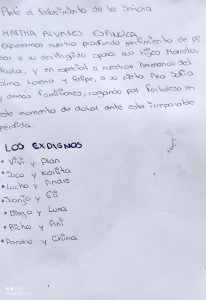 Ante el fallecimiento de la Señora
MARTHA ALVARES ESPINOZA
Expresamos nuestro profundo sentimiento de pe
sar a su distinguido esposo, sus hijos Marcelo,
Paola, y en especial a nuestros hermanos del
alma Lorena y Felipe, a su nieta Ana Sofia
y demas familiares, rogando por fortaleza en
este momento de dolor ante esta irreparable
perdida.
LOS EXDIGNOS
• Vivi y Alan
• Juco y Karlita
• Lucho y Andre
• Juanjo y Eli
• Diego y Luna
• Bicho y Ani
• Poncho y China